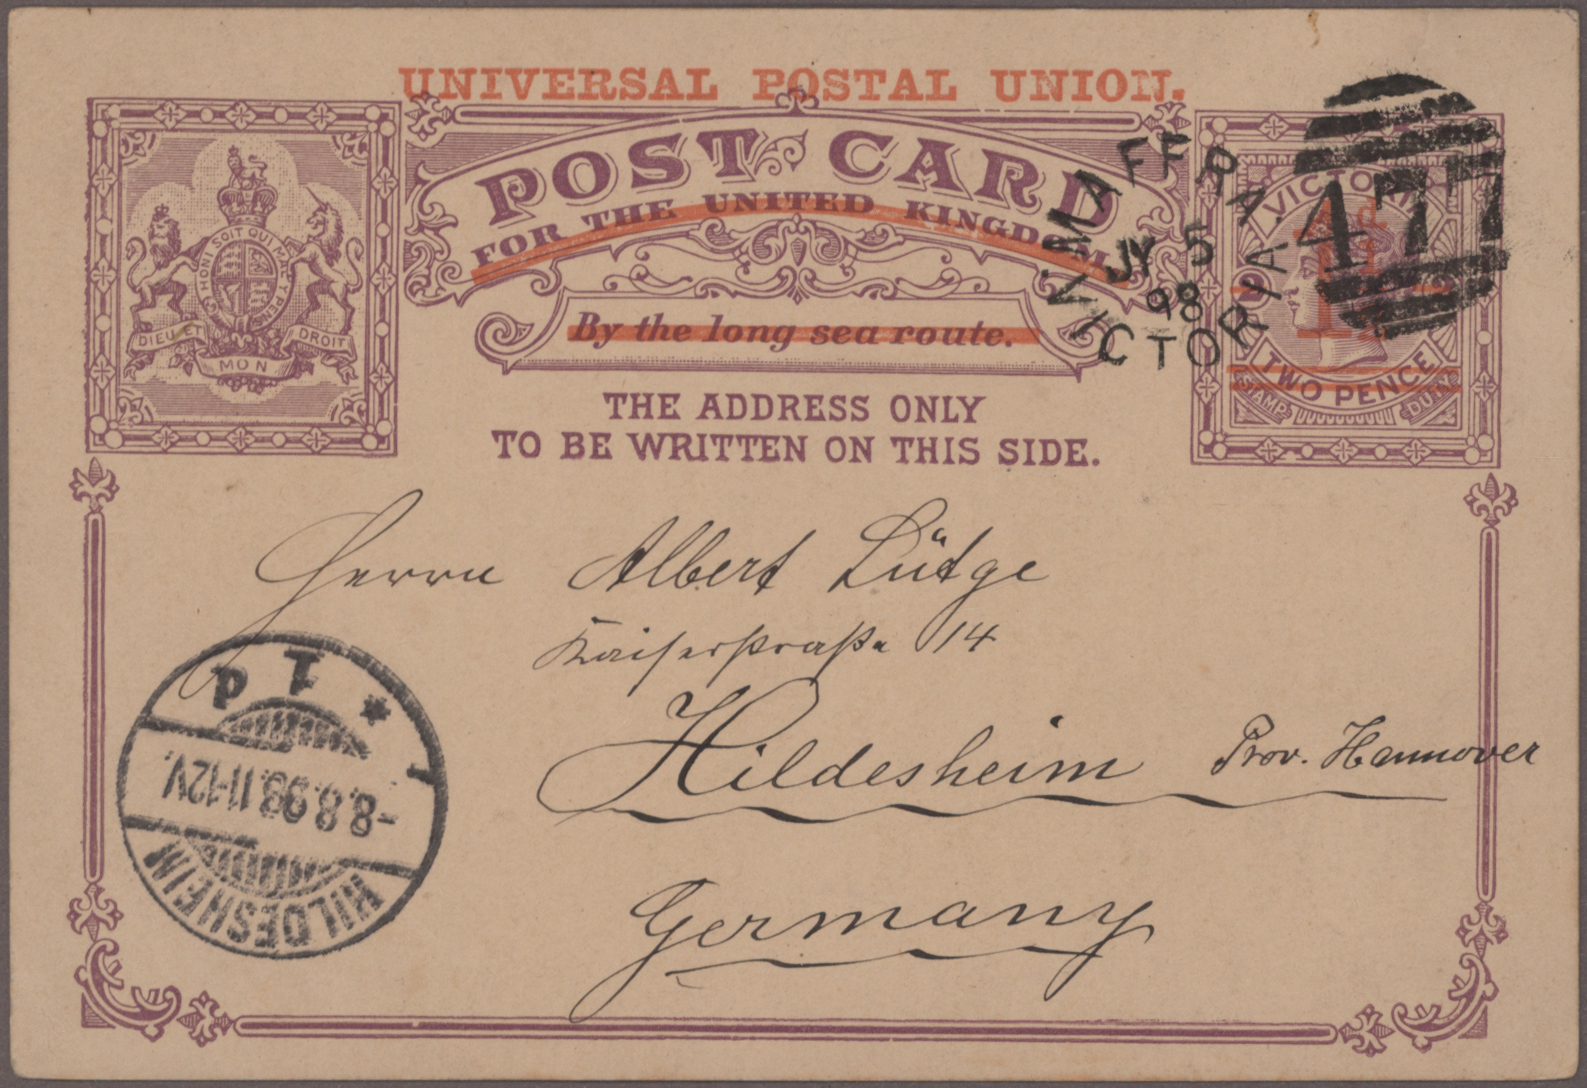 UNIVERSAL POSTAL UNION.
POST CARD
FOR THE UNITED KINGDOM
By the long sea route.
THE ADDRESS ONLY
TO BE WRITTEN ON THIS SIDE.
HONI SOIT QUI MAL Y PENSE
DIEU ET MON DROIT
MAFFRA.
JY 5
98
VICTORIA
477
VICTORIA
2
TWO PENCE
STAMP DUTY
Herrn Albert Lütge
Kaiserstraße 14
Hildesheim Prov. Hannover
Germany
HILDESHEIM
-8.8.98.11-12V.
* 1d